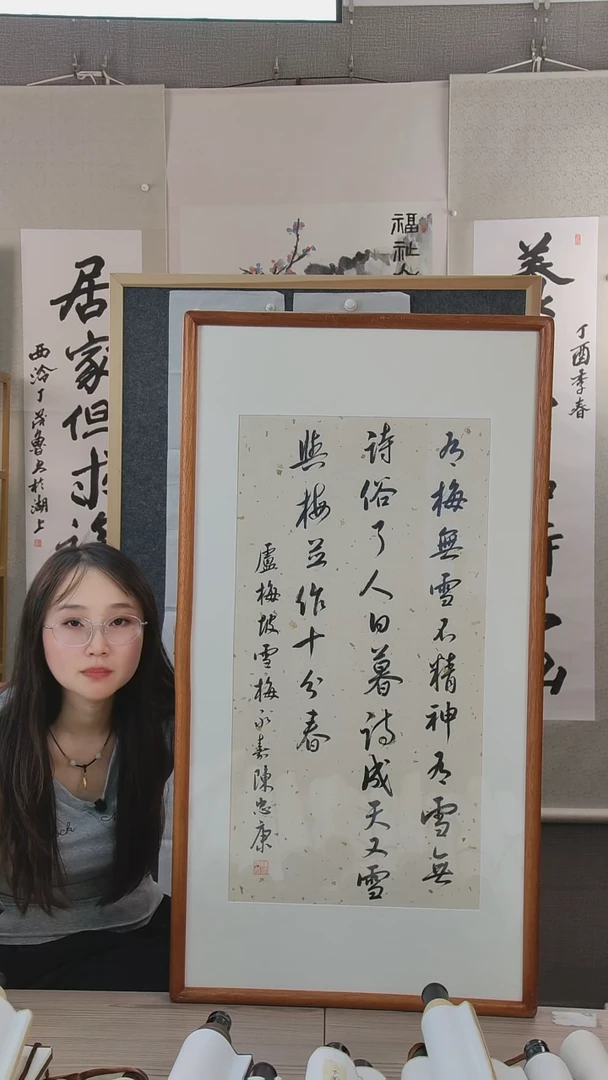 有梅無雪不精神有雪無
詩俗了人日暮詩成天又雪
與梅並作十分春
盧梅坡雪梅永嘉陳忠康
丁酉季春
福祉
居家但求
西泠丁茂魯書於湖上